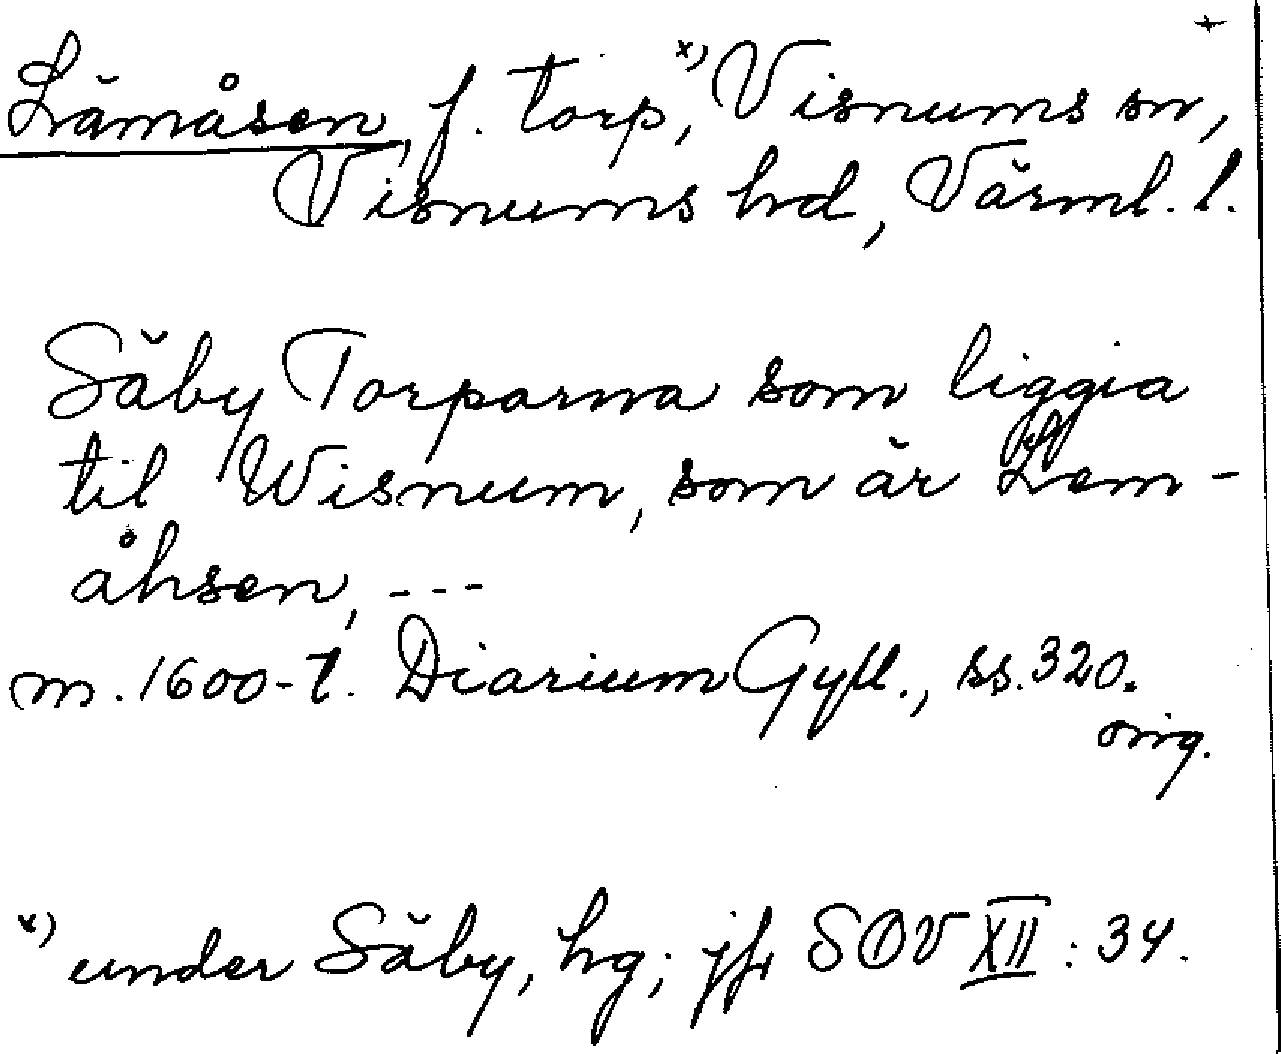 +
Lämåsen, f. torp, x) Visnums sn,
Visnums hd, Värml. l.
Säby Torparna som liggia
til Wisnum, som är Lem-
åhsen, ---
m. 1600-t. Diarium Gyll., ss. 320.
orig.
x) under Säby, hg; jfr SOV XII: 34.